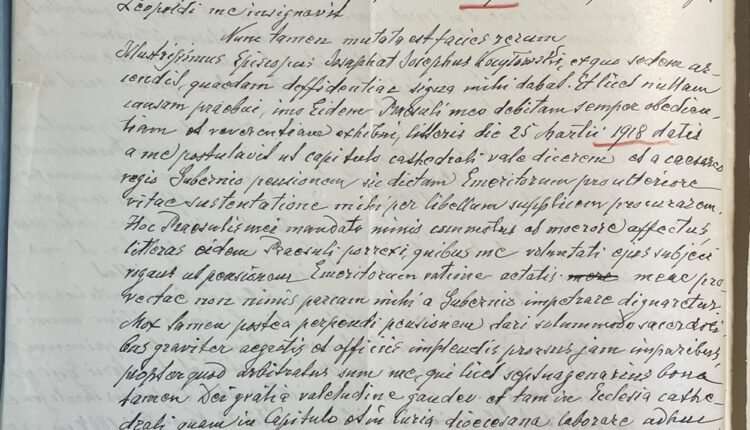 Leopoldi me insignavit
Nunc tamen mutata est facies rerum
Illustrissimus Episcopus Josaphat Josephus Kocyłowski, ex quo sedem as-
cendit, quaedam deffidentiae signa mihi dabat. Et licet nullam
causam praebui, imo Eidem Praesuli meo debitam semper obedien-
tiam et reverentiam exhibui, litteris die 25 Martii 1918 datis
a me postulavit ut capitulo cathedrali vale dicerem et a caesareo
regio Gubernio pensionem sic dictam Emeritorum pro ulteriore
vitae sustentatione mihi per libellum supplicem procurarem.
Hoc Praesulis mei mandato nimis commotus et moerore affectus,
litteras eidem Praesuli porrexi, quibus me voluntati ejus subjeci
rogans ut pensionem Emeritorum ratione aetatis meae pro-
vectae non nimis parcam mihi a Gubernio impetrare dignaretur.
Mox tamen postea perpendi pensionem dari solummodo sacerdoti-
bus graviter aegrotis et officiis implendis prorsus jam imparibus,
propter quod arbitratus sum me, qui licet septuagenarius bona
tamen Dei gratia valetudine gaudeo et tam in Ecclesia cathe-
drali quam in Capitulo et in Curia dioecesana laborare adhuc